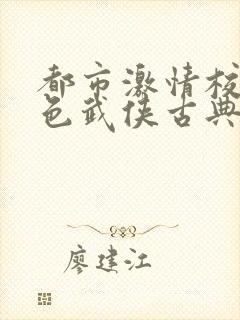 都市激情校
色武侠古典
廖建江